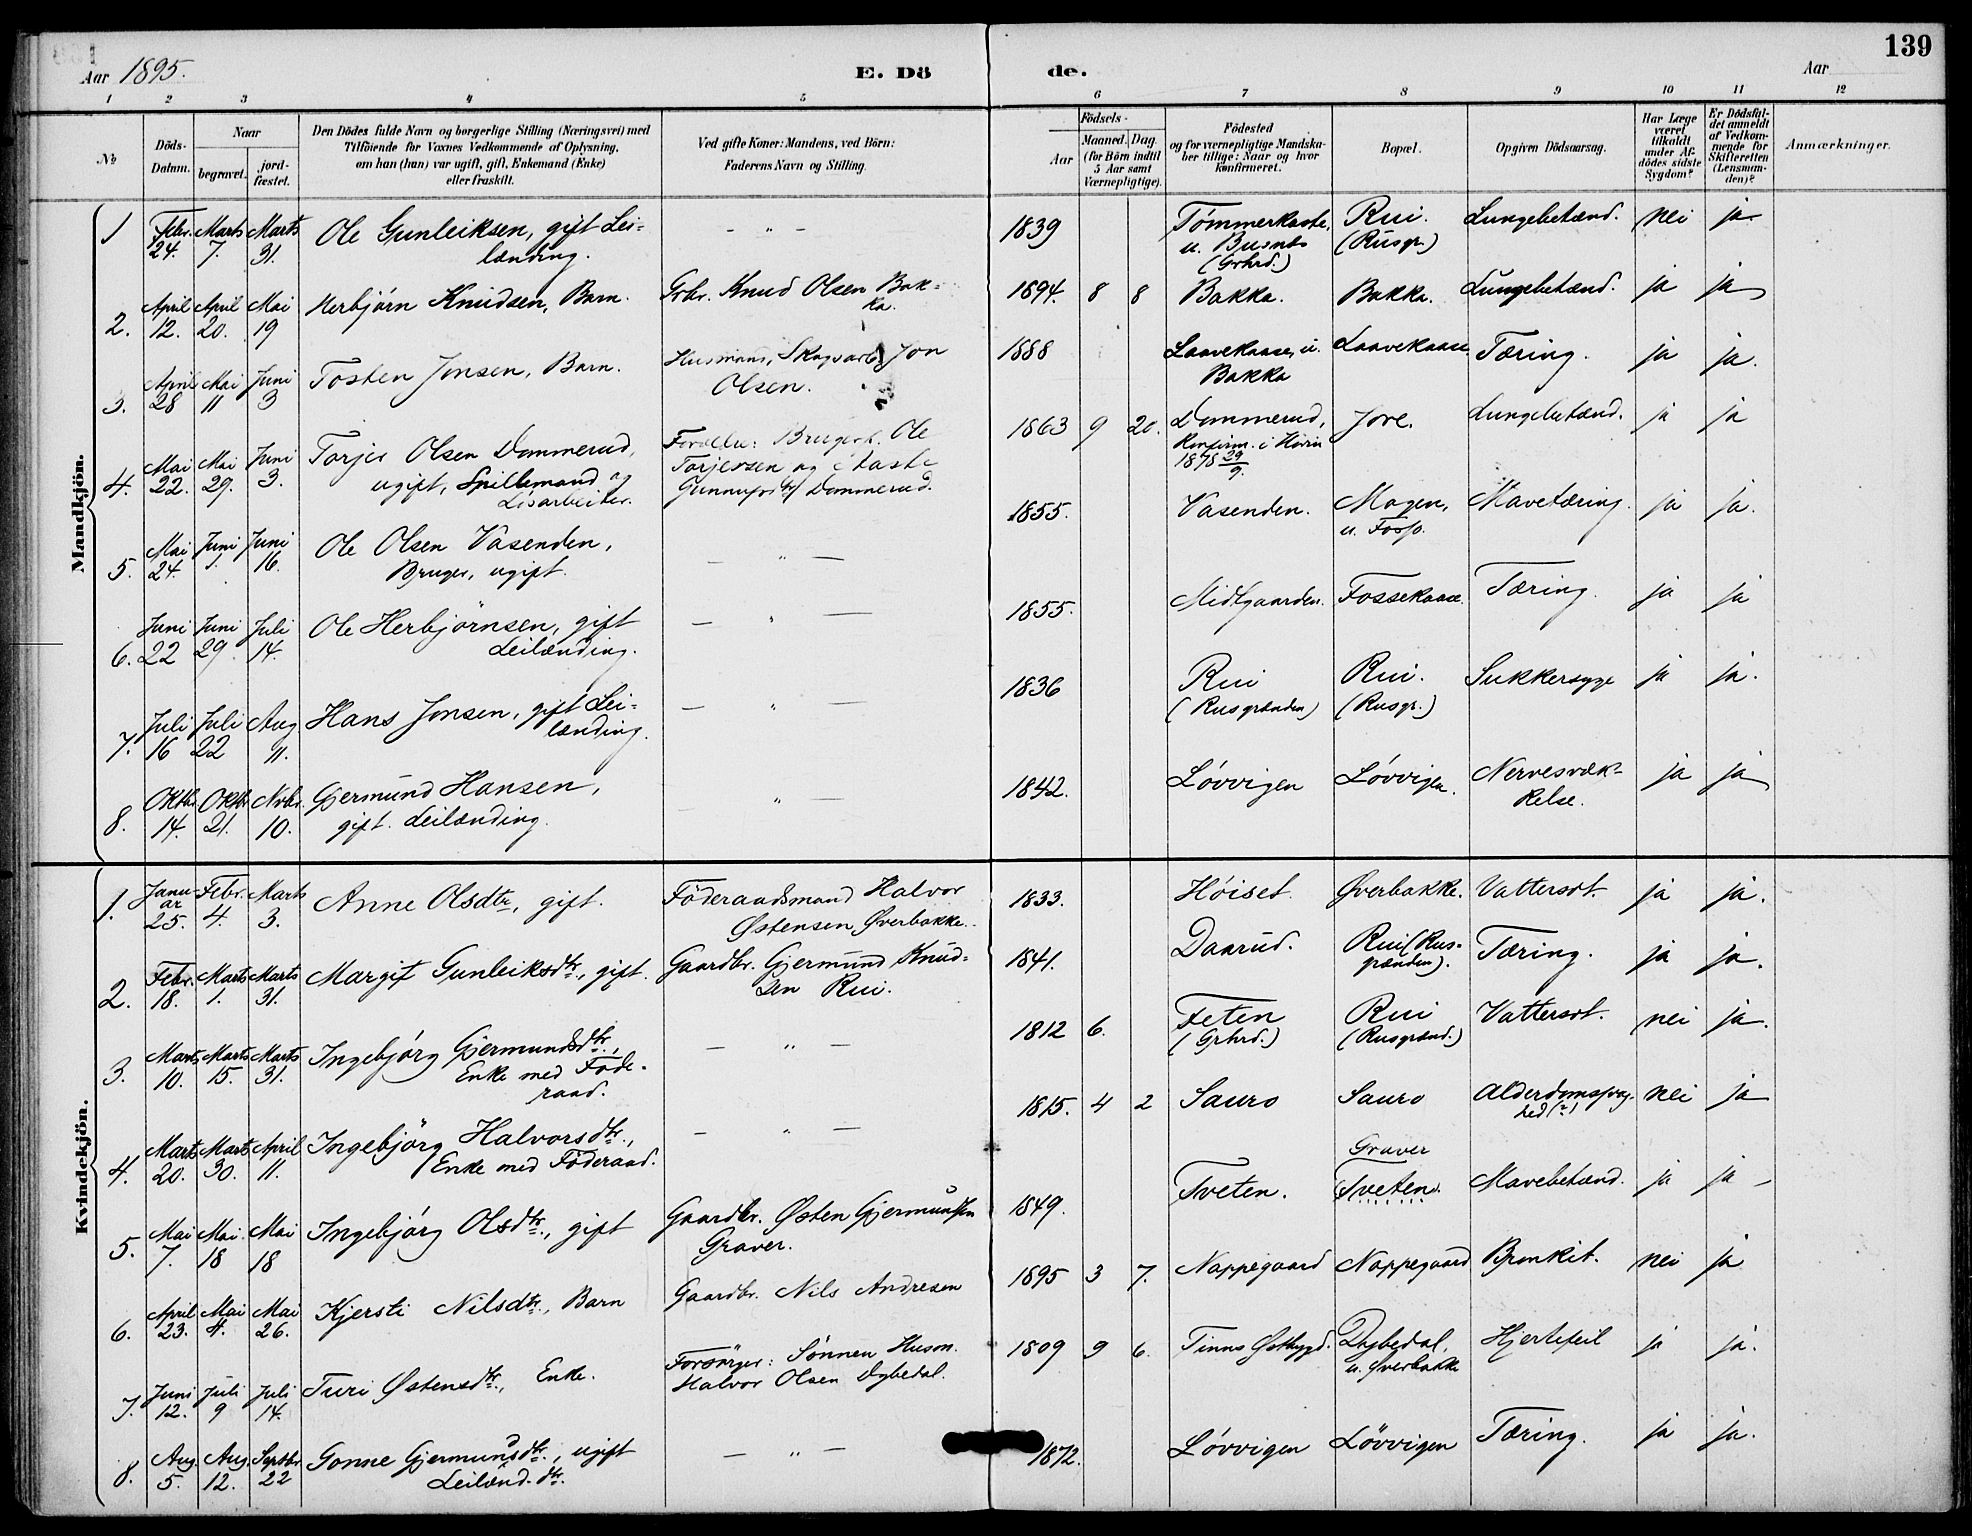 139
Aar 1895.
E. Dö de.
Aar
1 2 3 4 5 6 7 8 9 10 11 12
No
Döds-Datum.
Naar
begravet.
jord-fæstet.
Den Dödes fulde Navn og borgerlige Stilling (Næringsvei) med
Tilföiende for Voxnes Vedkommende af Oplysning,
om han (hun) var ugift, gift, Enkemand (Enke)
eller fraskilt.
Ved gifte Koner: Mandens, ved Börn:
Faderens Navn og Stilling.
Födsels-
Aar
Maaned. Dag.
(for Börn indtil
5 Aar samt
Værnepligtige).
Födested
og for værnepligtige Mandska-
ber tillige: Naar og hvor
konfirmeret.
Bopæl.
Opgiven Dödsaarsag.
Har Læge
været
tilkaldt
under Af-
dödes sidste
Sygdom?
Er Dödsfal-
det anmeldt
af Vedkom-
mende for
Skifteretten
(Lensman-
den)?
Anmærkninger.
Mandkjön.
1 Febr. 24. Marts 7. Marts 31. Ole Gunleiksen, gift Lei-
lænding. - " - 1839 Tømmerkaase, u. Busnes (Grhrd.) Rui. (Rusgr.) Lungebetænd. nei ja
2. April 12. April 20. Mai 19 Herbjörn Knudsen, Barn. Grbr. Knud Olsen Bak-
ka. 1894. 8 8 Bakka. Bakka. Lungebetænd. ja ja
3. April 28 Mai 11 Juni 3 Tosten Jonsen, Barn. Husmand, Skogvarb. Jon
Olsen. 1888 Laavekaase, u. Bakka Laavekaase Tæring. ja ja.
4. Mai 22. Mai 29. Juni 3. Torjer Olsen Dommerud,
ugift, Spillemand og
Lösarbeider. Forældre: Brugerf. Ole
Torjersen og Aaste
Gunnufsdtr Dommerud. 1863 9 20. Dommerud, Konfirm. i Hovin 1878 29/9. Jore. Lungebetænd. ja ja
5. Mai 24. Juni 1. Juni 16. Ole Olsen Vasenden,
Bruger, ugift. - " - 1855. Vasenden. Mogen, u. Fosso. Mavetæring. ja ja.
6. Juni 22 Juni 29 Juli 14. Ole Herbjörnsen, gift
Leilænding. - " - 1855. Midtgaarden. Fossekaase. Tæring. ja ja
7. Juli 16 Juli 22 Aug 11. Hans Jonsen, gift Lei-
lænding. - " - 1836 Rui (Rusgrænden) Rui. (Rusgr.) Sukkersyge ja ja.
8. Oktbr. 14. Oktbr. 21. Novbr. 10. Gjermund Hansen,
gift. Leilænding. - " - 1842. Lövvigen Lövvigen. Nervesvæk-
kelse. ja ja
Kvindekjön.
1. Janu-
ar 25. Febr. 4. Marts 3. Anne Olsdtr., gift. Föderaadsmand Halvor
Østensen Øverbakke. 1833. Höiset. Øverbakke. Vattersot. ja ja.
2. Febr. 18. Marts 1. Marts 31. Margit Gunleiksdtr., gift. Gaardbr. Gjermund Knud-
sen Rui. 1841. Daarud. Rui (Rus-
grænden). Tæring. ja ja.
3. Marts 10. Marts 15. Marts 31. Ingebjörg Gjermundsdtr.,
Enke med Föde-
raad. - " - 1812 6. Feten (Grhrd.) Rui (Rusgrænd.) Vattersot. nei ja.
4. Marts 20. Marts 30. April 11. Ingebjörg Halvorsdtr.,
Enke med Föderaad. - " - 1815. 4 2 Sauro Sauro Alderdomssvag-
hed (?) nei ja
5. Mai 7. Mai 18 Mai 18 Ingebjörg Olsdtr., gift Gaardbr. Østen Gjermundsen
Graver. 1849. Tveten. Graver (Tveten). Mavebetænd. ja ja -
6. April 23. Mai 4. Mai 26. Kjersti Nilsdtr., Barn Gaardbr. Nils Andresen 1895 3 7. Nappegaard Nappegaard Bronkit. nei ja
7. Juni 12. Juli 9 Juli 14. Turi Østensdtr., Enke. Forsörger: Sönnen Husm.
Halvor Olsen Dybedal. 1809 9 6. Tinns Østbygd. Dybedal, u. Øverbakke Hjertefeil ja ja.
8. Aug. 5. Aug. 12. Septbr 22 Gonne Gjermundsdtr., ugift
Leilænd. dtr. - " - 1872. Lövvigen Lövvigen Tæring. ja ja.